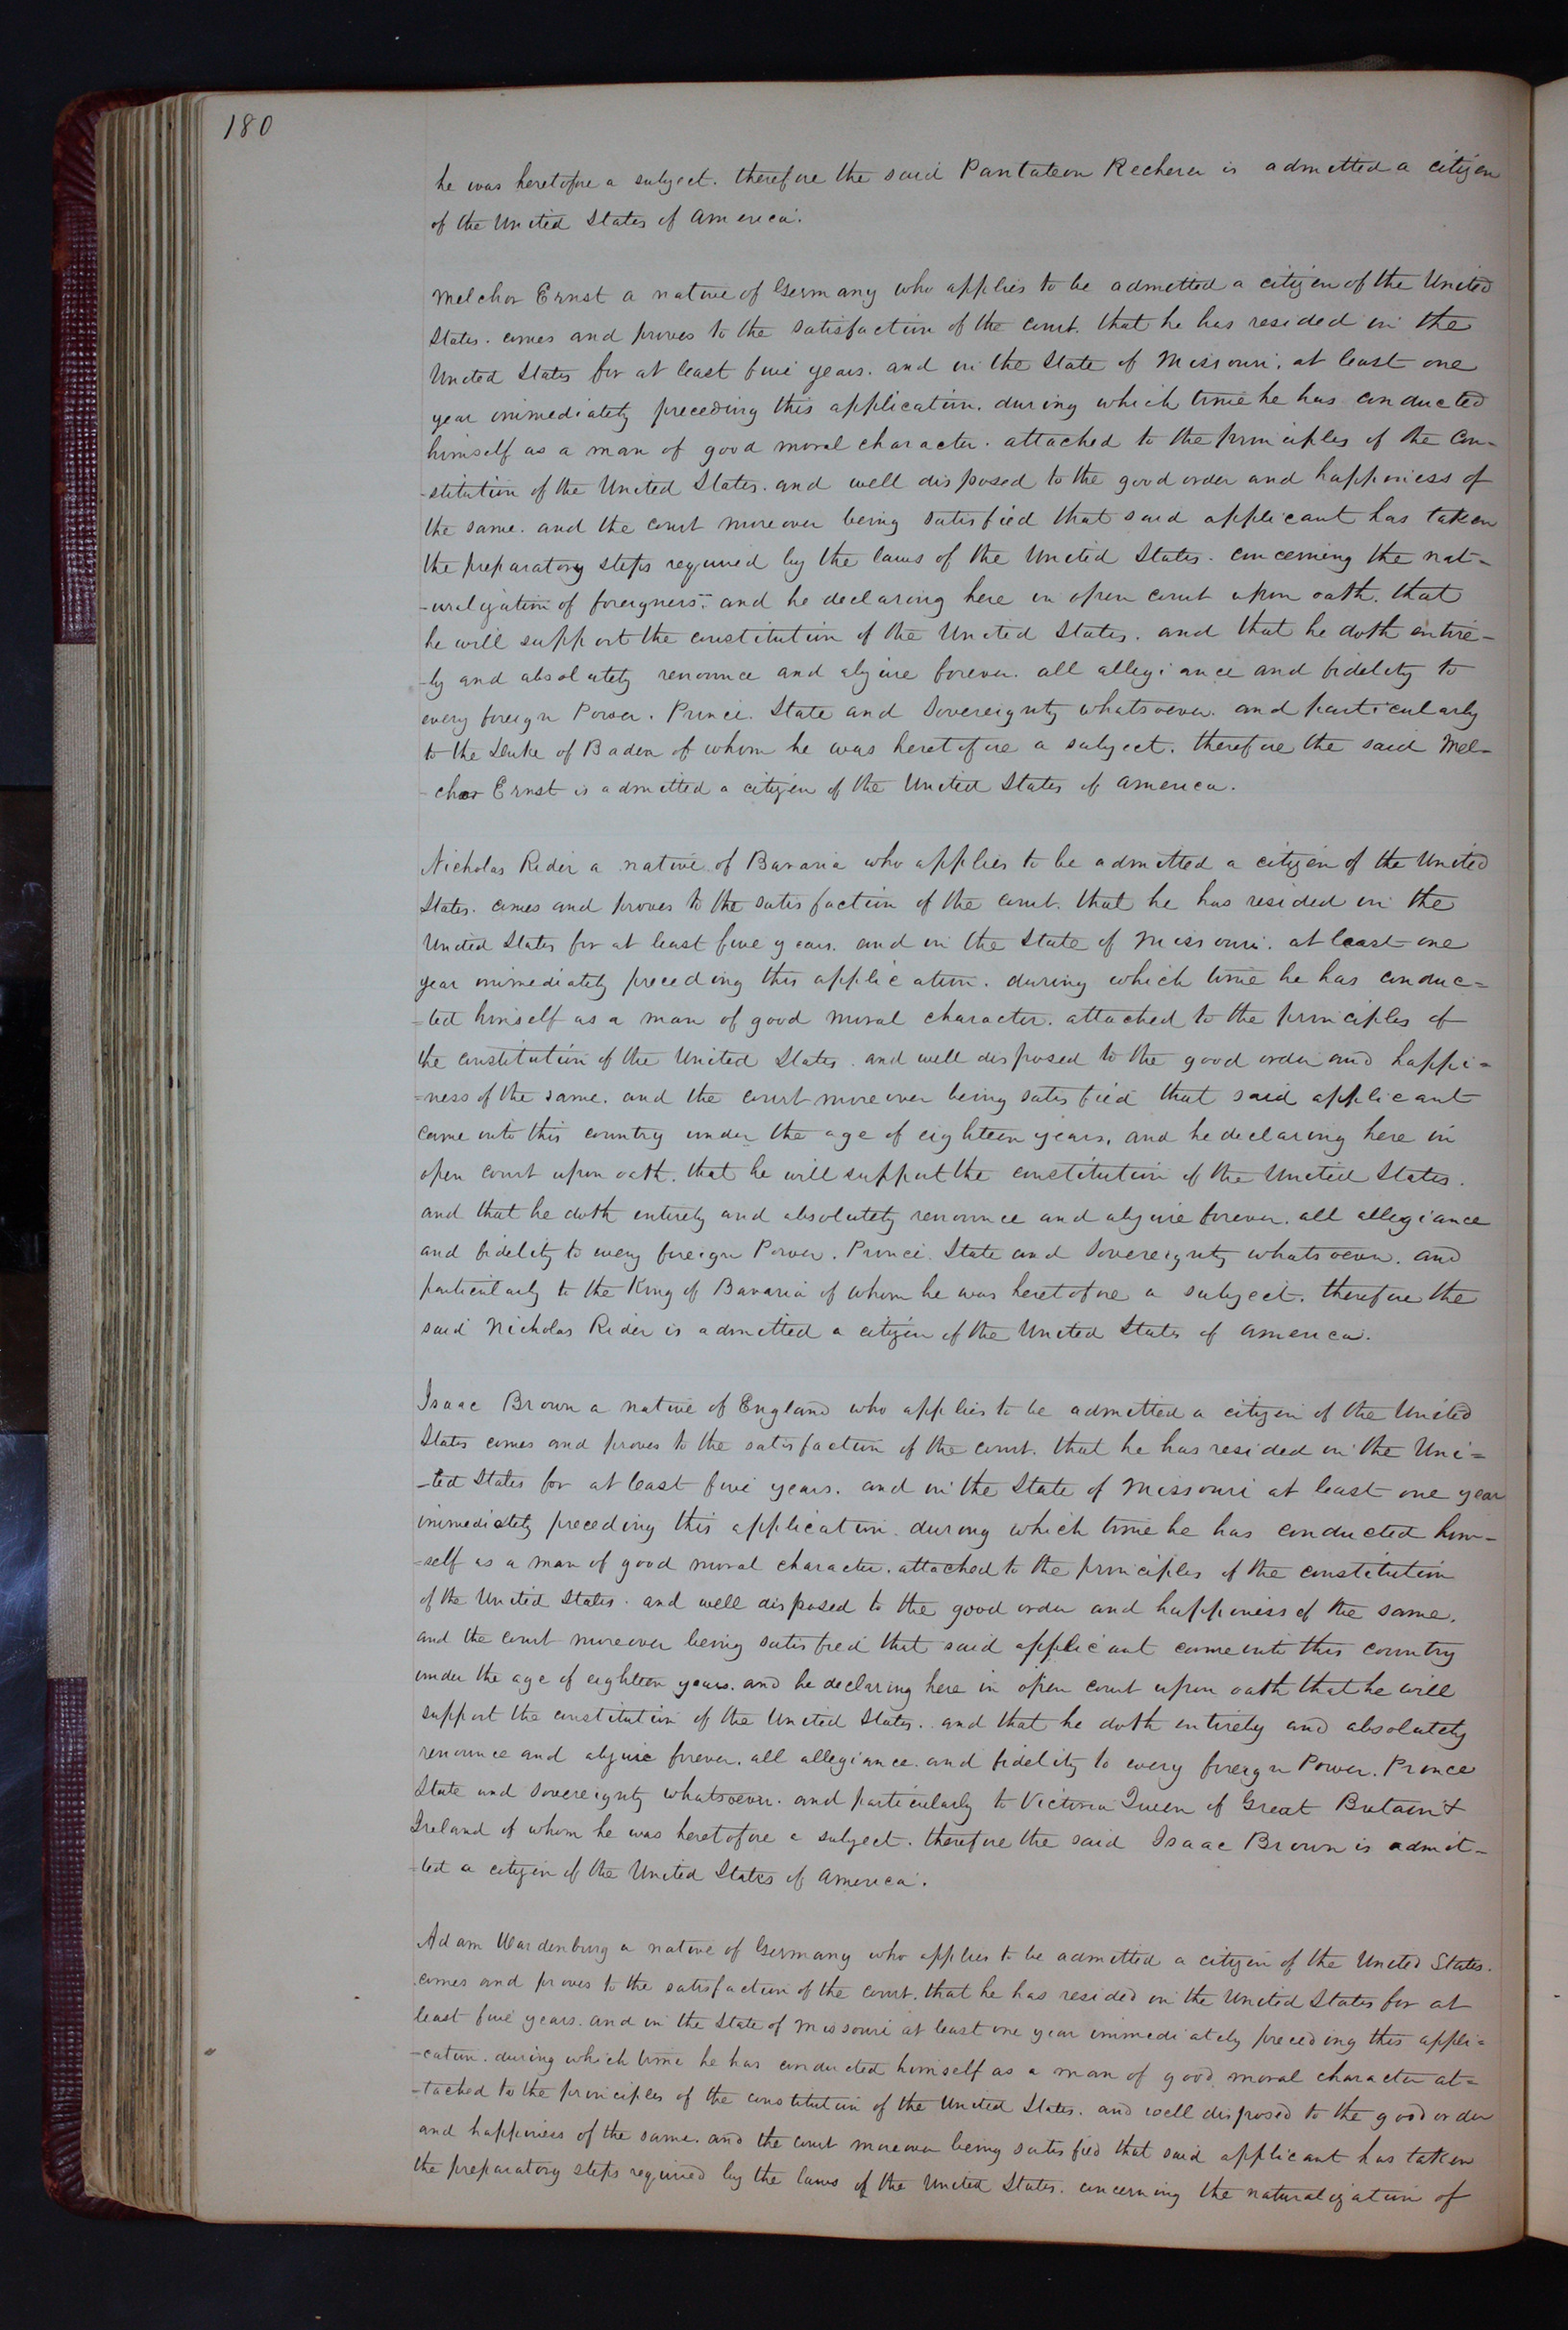 180
he was heretofore a subject. therefore the said Pantateon Recherer is admitted a citizen
of the United States of America.
Melchor Ernst a native of Germany who applies to be admitted a citizen of the United
States. comes and proves to the satisfaction of the court. that he has resided in the
United States for at least five years. and in the State of Missouri. at least one
year immediately preceding this application. during which time he has conducted
himself as a man of good moral character. attached to the principles of the Con-
-stitution of the United States. and well disposed to the good order and happiness of
the same. and the court moreover being satisfied that said applicant has taken
the preparatory steps required by the laws of the United States. concerning the nat-
-uralization of foreigners. and he declaring here in open court upon oath. that
he will support the constitution of the United States. and that he doth entire-
-ly and absolutely renounce and abjure forever. all allegiance and fidelity to
every foreign Power. Prince. State and Sovereignty whatsoever. and particularly
to the Duke of Baden of whom he was heretofore a subject. therefore the said Mel-
-chor Ernst is admitted a citizen of the United States of America.
Nicholas Rider a native of Bavaria who applies to be admitted a citizen of the United
States. comes and proves to the satisfaction of the court. that he has resided in the
United States for at least five years. and in the State of Missouri. at least one
year immediately preceding this application. during which time he has conduc=
=ted himself as a man of good moral character. attached to the principles of
the constitution of the United States. and well disposed to the good order and happi=
=ness of the same. and the court moreover being satisfied that said applicant
came into this country under the age of eighteen years. and he declaring here in
open court upon oath. that he will support the constitution of the United States.
and that he doth entirely and absolutely renounce and abjure forever. all allegiance
and fidelity to every foreign Power. Prince. State and Sovereignty whatsoever. and
particularly to the King of Bavaria of whom he was heretofore a subject. therefore the
said Nicholas Rider is admitted a citizen of the United States of America.
Isaac Brown a native of England who applies to be admitted a citizen of the United
States comes and proves to the satisfaction of the court. that he has resided in the Uni=
-ted States for at least five years. and in the State of Missouri at least one year
immediately preceding this application. during which time he has conducted him-
=self as a man of good moral character. attached to the principles of the constitution
of the United States. and well disposed to the good order and happiness of the same.
and the court moreover being satisfied that said applicant came into this country
under the age of eighteen years. and he declaring here in open court upon oath that he will
support the constitution of the United States. and that he doth entirely and absolutely
renounce and abjure forever. all allegiance. and fidelity to every foreign Power. Prince
State and Sovereignty whatsoever. and particularly to Victoria Queen of Great Britain &
Ireland of whom he was heretofore a subject. therefore the said Isaac Brown is admit-
-ted a citizen of the United States of America.
Adam Wardenburg a native of Germany who applies to be admitted a citizen of the United States.
comes and proves to the satisfaction of the court. that he has resided in the United States for at
least five years. and in the State of Missouri at least one year immediately preceding this appli=
-cation. during which time he has conducted himself as a man of good moral character at=
-tached to the principles of the constitution of the United States. and well disposed to the good order
and happiness of the same. and the court moreover being satisfied that said applicant has taken
the preparatory steps required by the laws of the United States. concerning the naturalization of